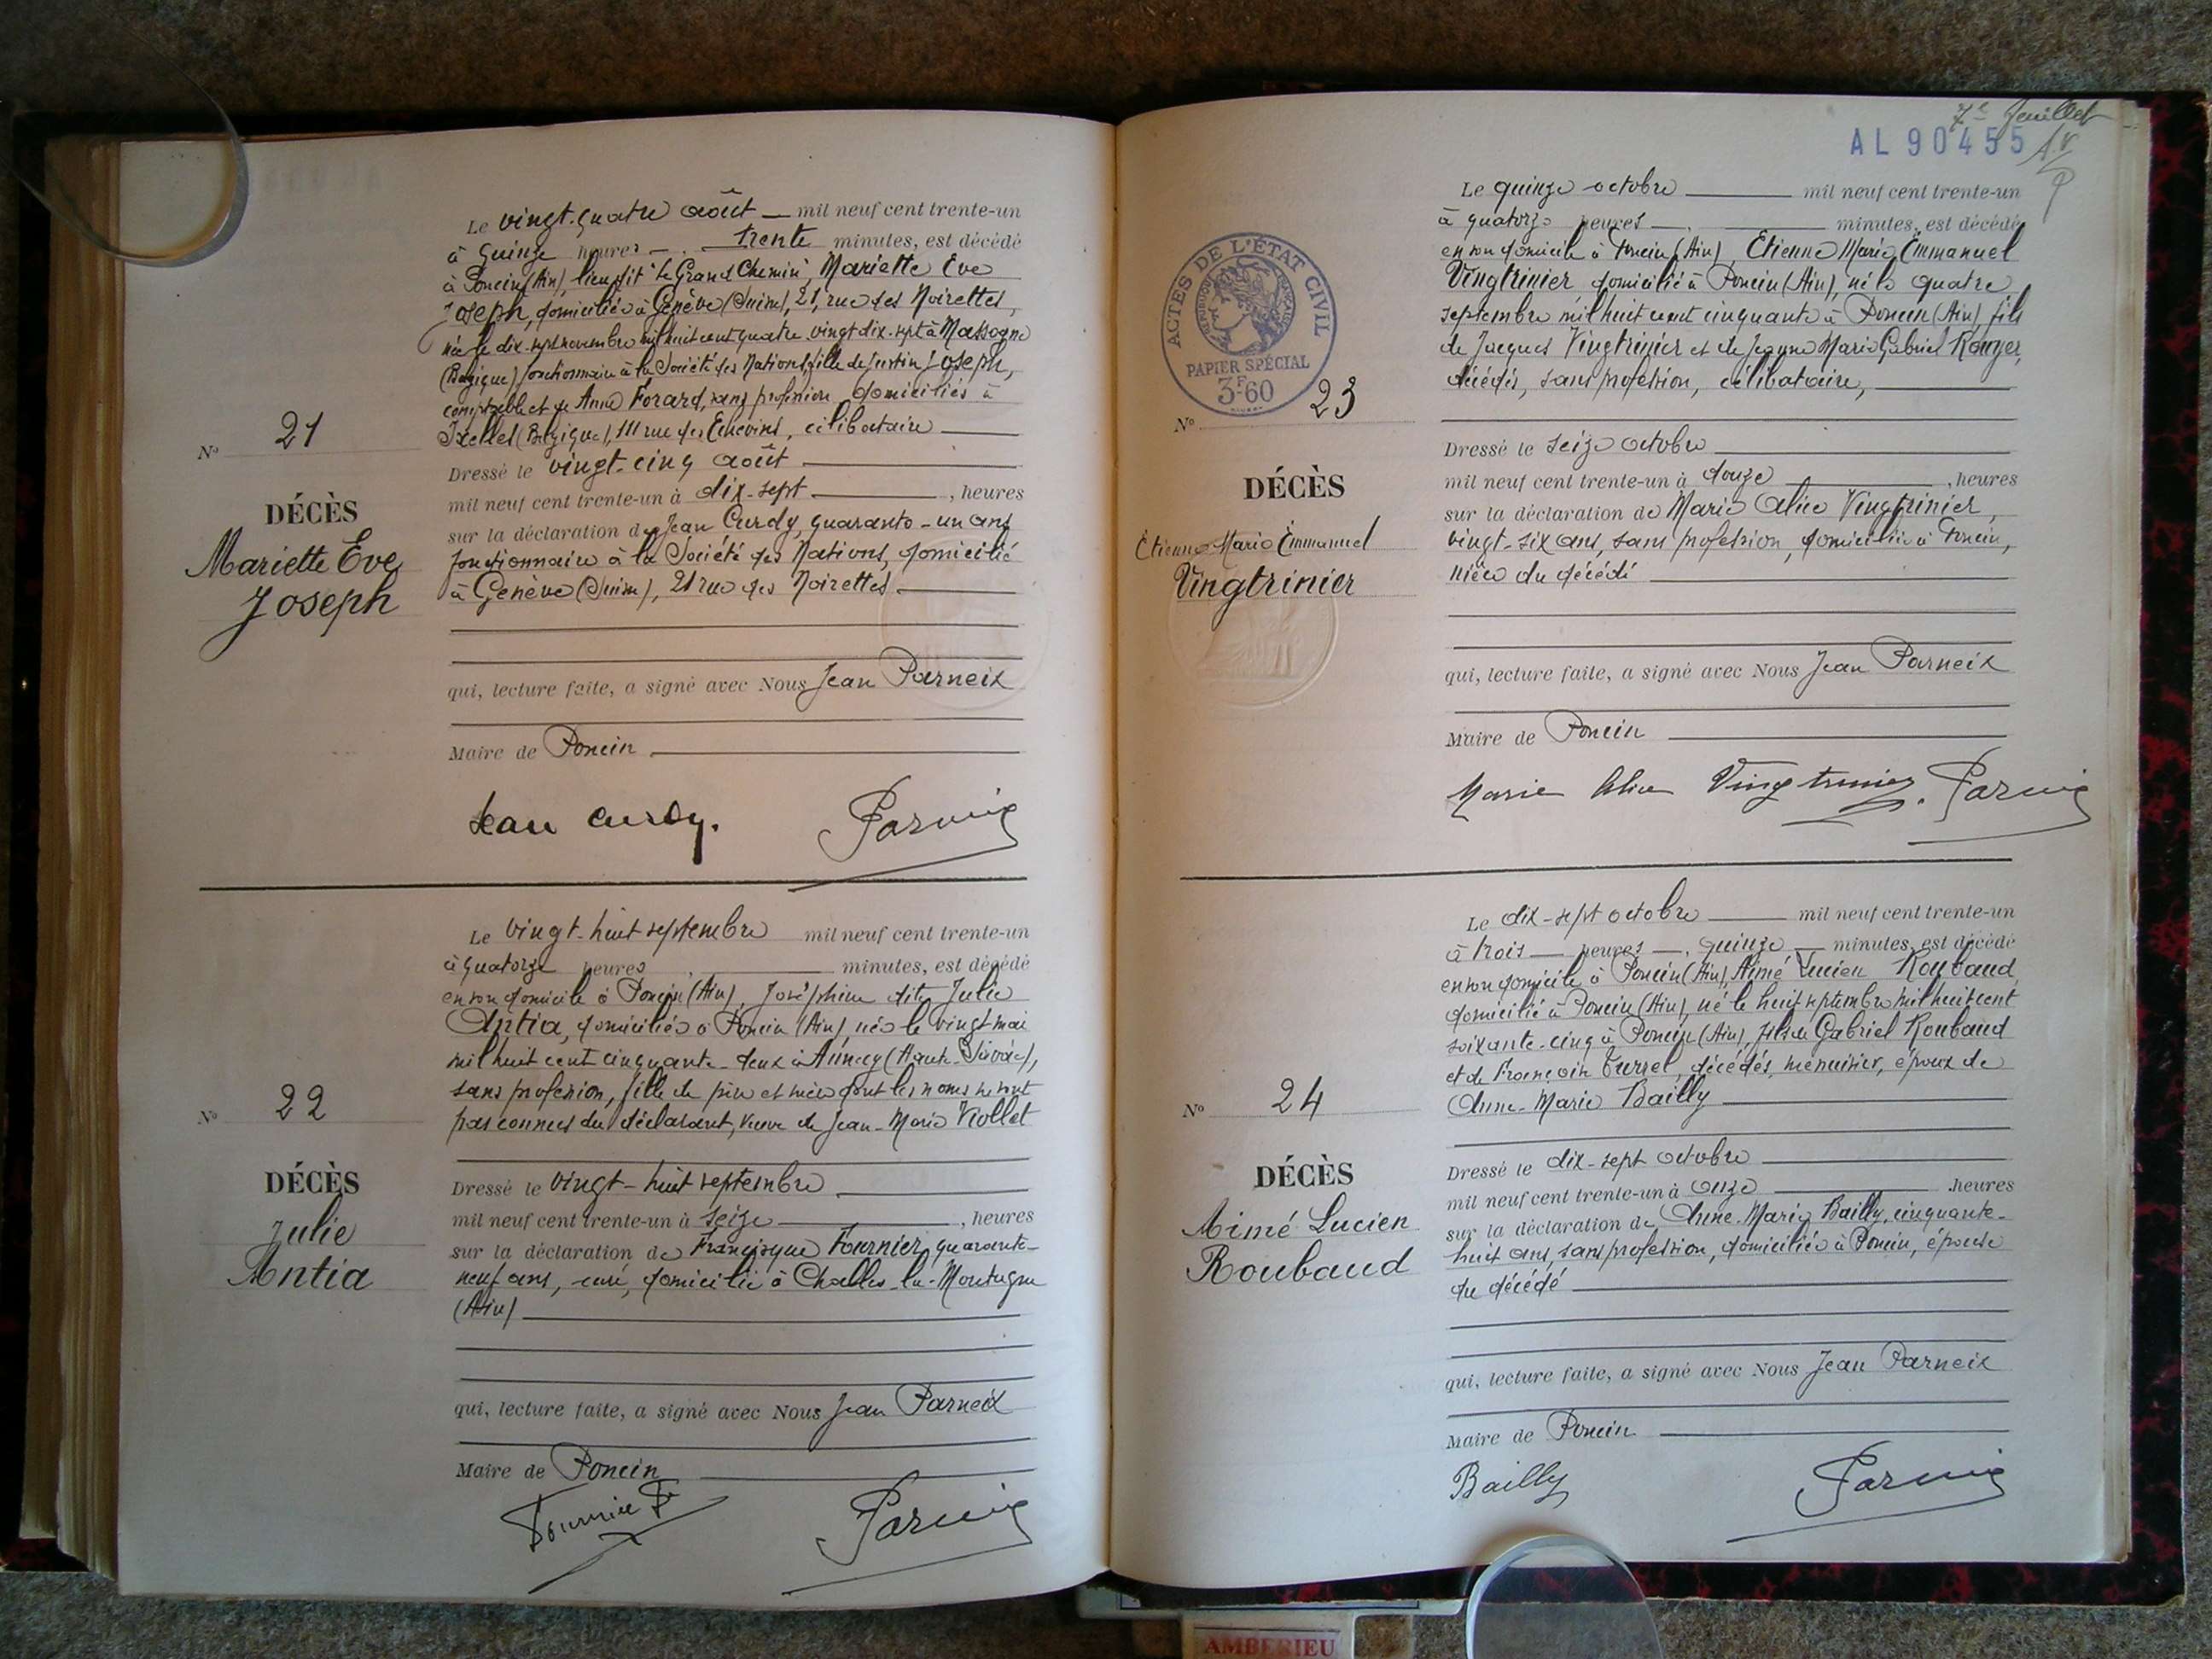 Le vingt-quatre août — mil neuf cent trente-un
à quinze heures — trente minutes, est décédé
à Poncin (Ain), lieu dit "Le Grand Chemin", Mariette Eve
Joseph, domiciliée à Genève (Suisse), 21, rue des Noirettes,
née le dix-sept novembre mil huit cent quatre-vingt-dix-sept à Massogne
(Belgique) fonctionnaire à la Société des Nations, fille de Justin Joseph,
comptable et de Anna Forard, sans profession, domiciliés à
Ixelles (Belgique), 111 rue des Echevins, célibataire
Dressé le vingt-cinq août
mil neuf cent trente-un à dix-sept , heures
sur la déclaration de Jean Curdy, quarante-un ans
fonctionnaire à la Société des Nations, domicilié
à Genève (Suisse), 21 rue des Noirettes.
qui, lecture faite, a signé avec Nous Jean Parneix
Maire de Poncin
Jean Curdy. Parneix
No 21
DÉCÈS
Mariette Eve
Joseph
Le vingt-huit septembre mil neuf cent trente-un
à quatorze heures minutes, est décédé
en son domicile à Poncin (Ain), Joséphine dite Julie
Antia, domiciliée à Poncin (Ain) née le vingt mai
mil huit cent cinquante-deux à Annecy (Haute-Savoie),
sans profession, fille de père et mère dont les noms ne sont
pas connus du déclarant, veuve de Jean-Marie Viollet
Dressé le vingt-huit septembre
mil neuf cent trente-un à seize , heures
sur la déclaration de Francisque Fournier, quarante-
neuf ans, curé, domicilié à Challes-la-Montagne
(Ain)
qui, lecture faite, a signé avec Nous Jean Parneix
Maire de Poncin
Fournier Fr Parneix
No 22
DÉCÈS
Julie
Antia
7e feuillet
AL 90455
ACTES DE L'ÉTAT CIVIL
RÉPUBLIQUE FRANÇAISE
PAPIER SPÉCIAL
3F60
Le quinze octobre mil neuf cent trente-un
à quatorze heures minutes, est décédé
en son domicile à Poncin (Ain), Etienne Marie Emmanuel
Vingtrinier domicilié à Poncin (Ain), né le quatre
septembre mil huit cent cinquante à Poncin (Ain) fils
de Jacques Vingtrinier et de Jeanne Marie Gabriel Rouyer,
décédés, sans profession, célibataire,
Dressé le seize octobre
mil neuf cent trente-un à douze , heures
sur la déclaration de Marie Alice Vingtrinier,
vingt-six ans, sans profession, domiciliée à Poncin,
nièce du décédé
qui, lecture faite, a signé avec Nous Jean Parneix
Maire de Poncin
Marie Alice Vingtrinier. Parneix
No 23
DÉCÈS
Etienne Marie Emmanuel
Vingtrinier
Le dix-sept octobre mil neuf cent trente-un
à trois — heures — quinze — minutes, est décédé
en son domicile à Poncin (Ain), Aimé Lucien Roubaud
domicilié à Poncin (Ain), né le huit septembre mil huit cent
soixante-cinq à Poncin (Ain), fils de Gabriel Roubaud
et de Françoise Turrel, décédés, menuisier, époux de
Anne-Marie Bailly
Dressé le dix-sept octobre
mil neuf cent trente-un à onze heures
sur la déclaration de Anne-Marie Bailly, cinquante-
huit ans, sans profession, domiciliée à Poncin, épouse
du décédé
qui, lecture faite, a signé avec Nous Jean Parneix
Maire de Poncin
Bailly Parneix
No 24
DÉCÈS
Aimé Lucien
Roubaud
AMBERIEU